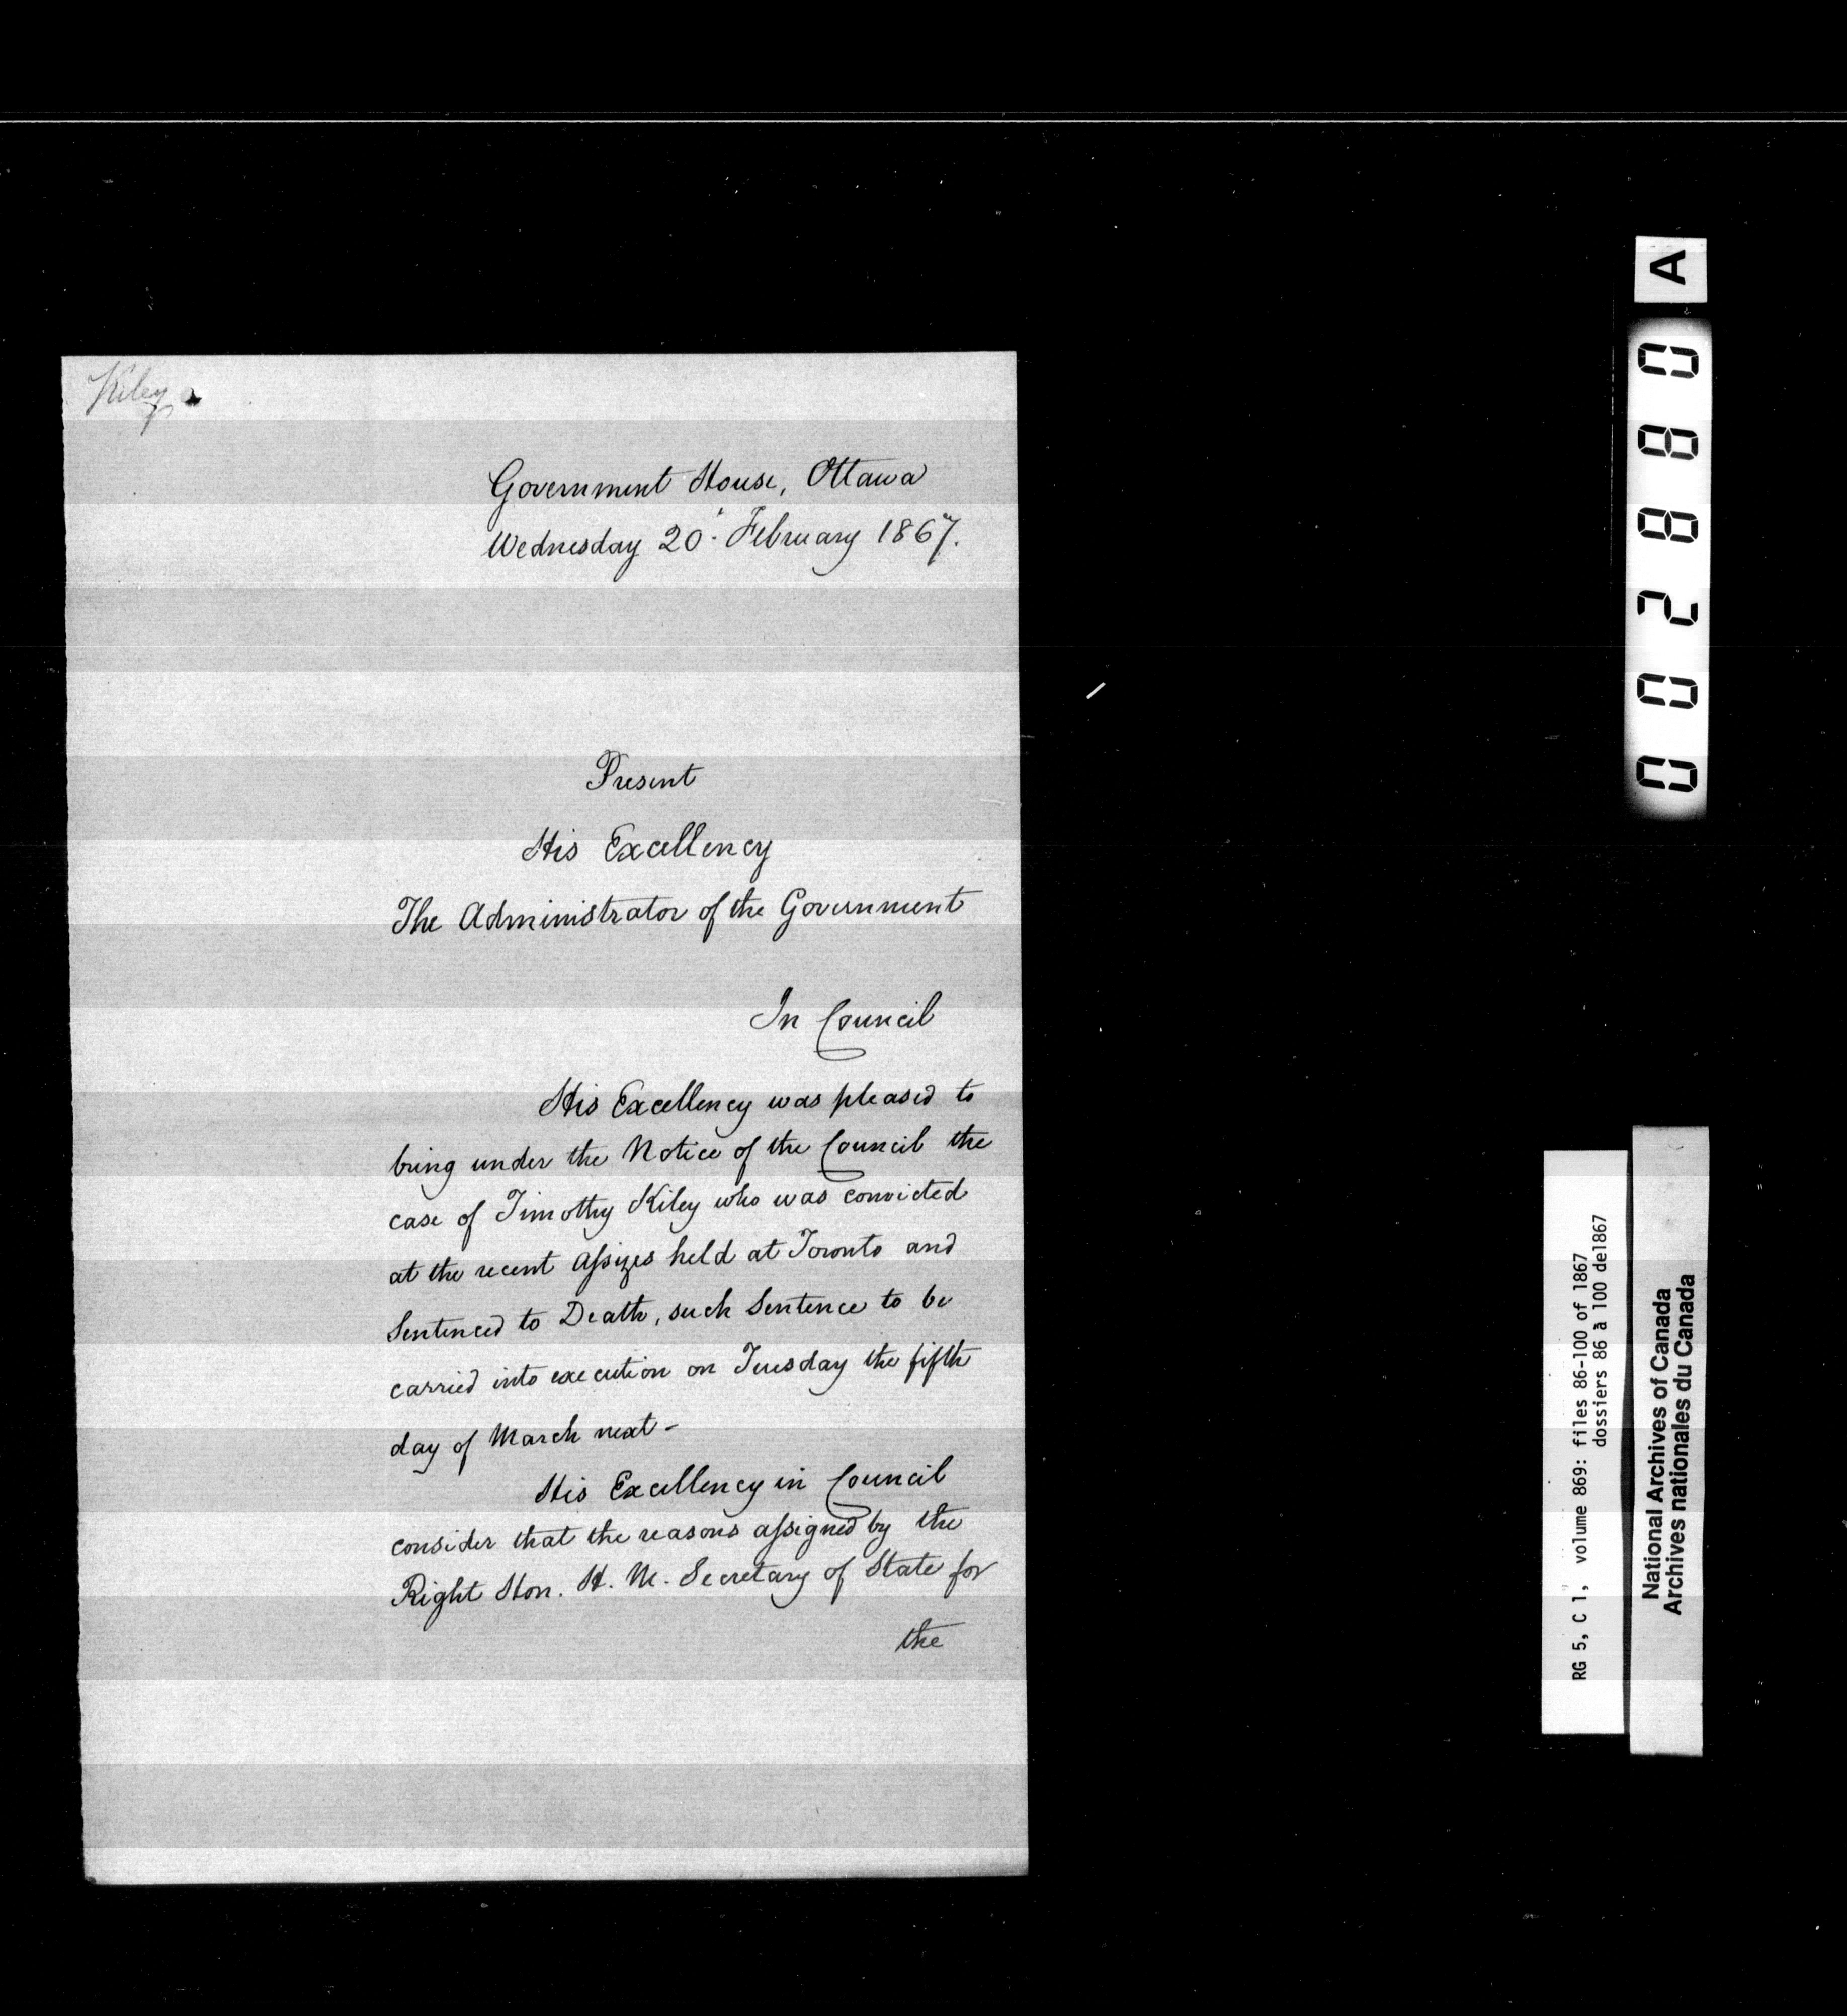 Kiley
Government House, Ottawa
Wednesday 20. February 1867.
Present
His Excellency
The Administrator of the Government
In Council
His Excellency was pleased to
bring under the Notice of the Council the
case of Timothy Kiley who was convicted
at the recent Assizes held at Toronto and
Sentenced to Death, such Sentence to be
carried into execution on Tuesday the fifth
day of March next -
His Excellency in Council
consider that the reasons assigned by the
Right Hon. H. M. Secretary of State for
the
A
002880
RG 5, C 1, volume 869: files 86-100 of 1867
dossiers 86 à 100 de1867
National Archives of Canada
Archives nationales du Canada